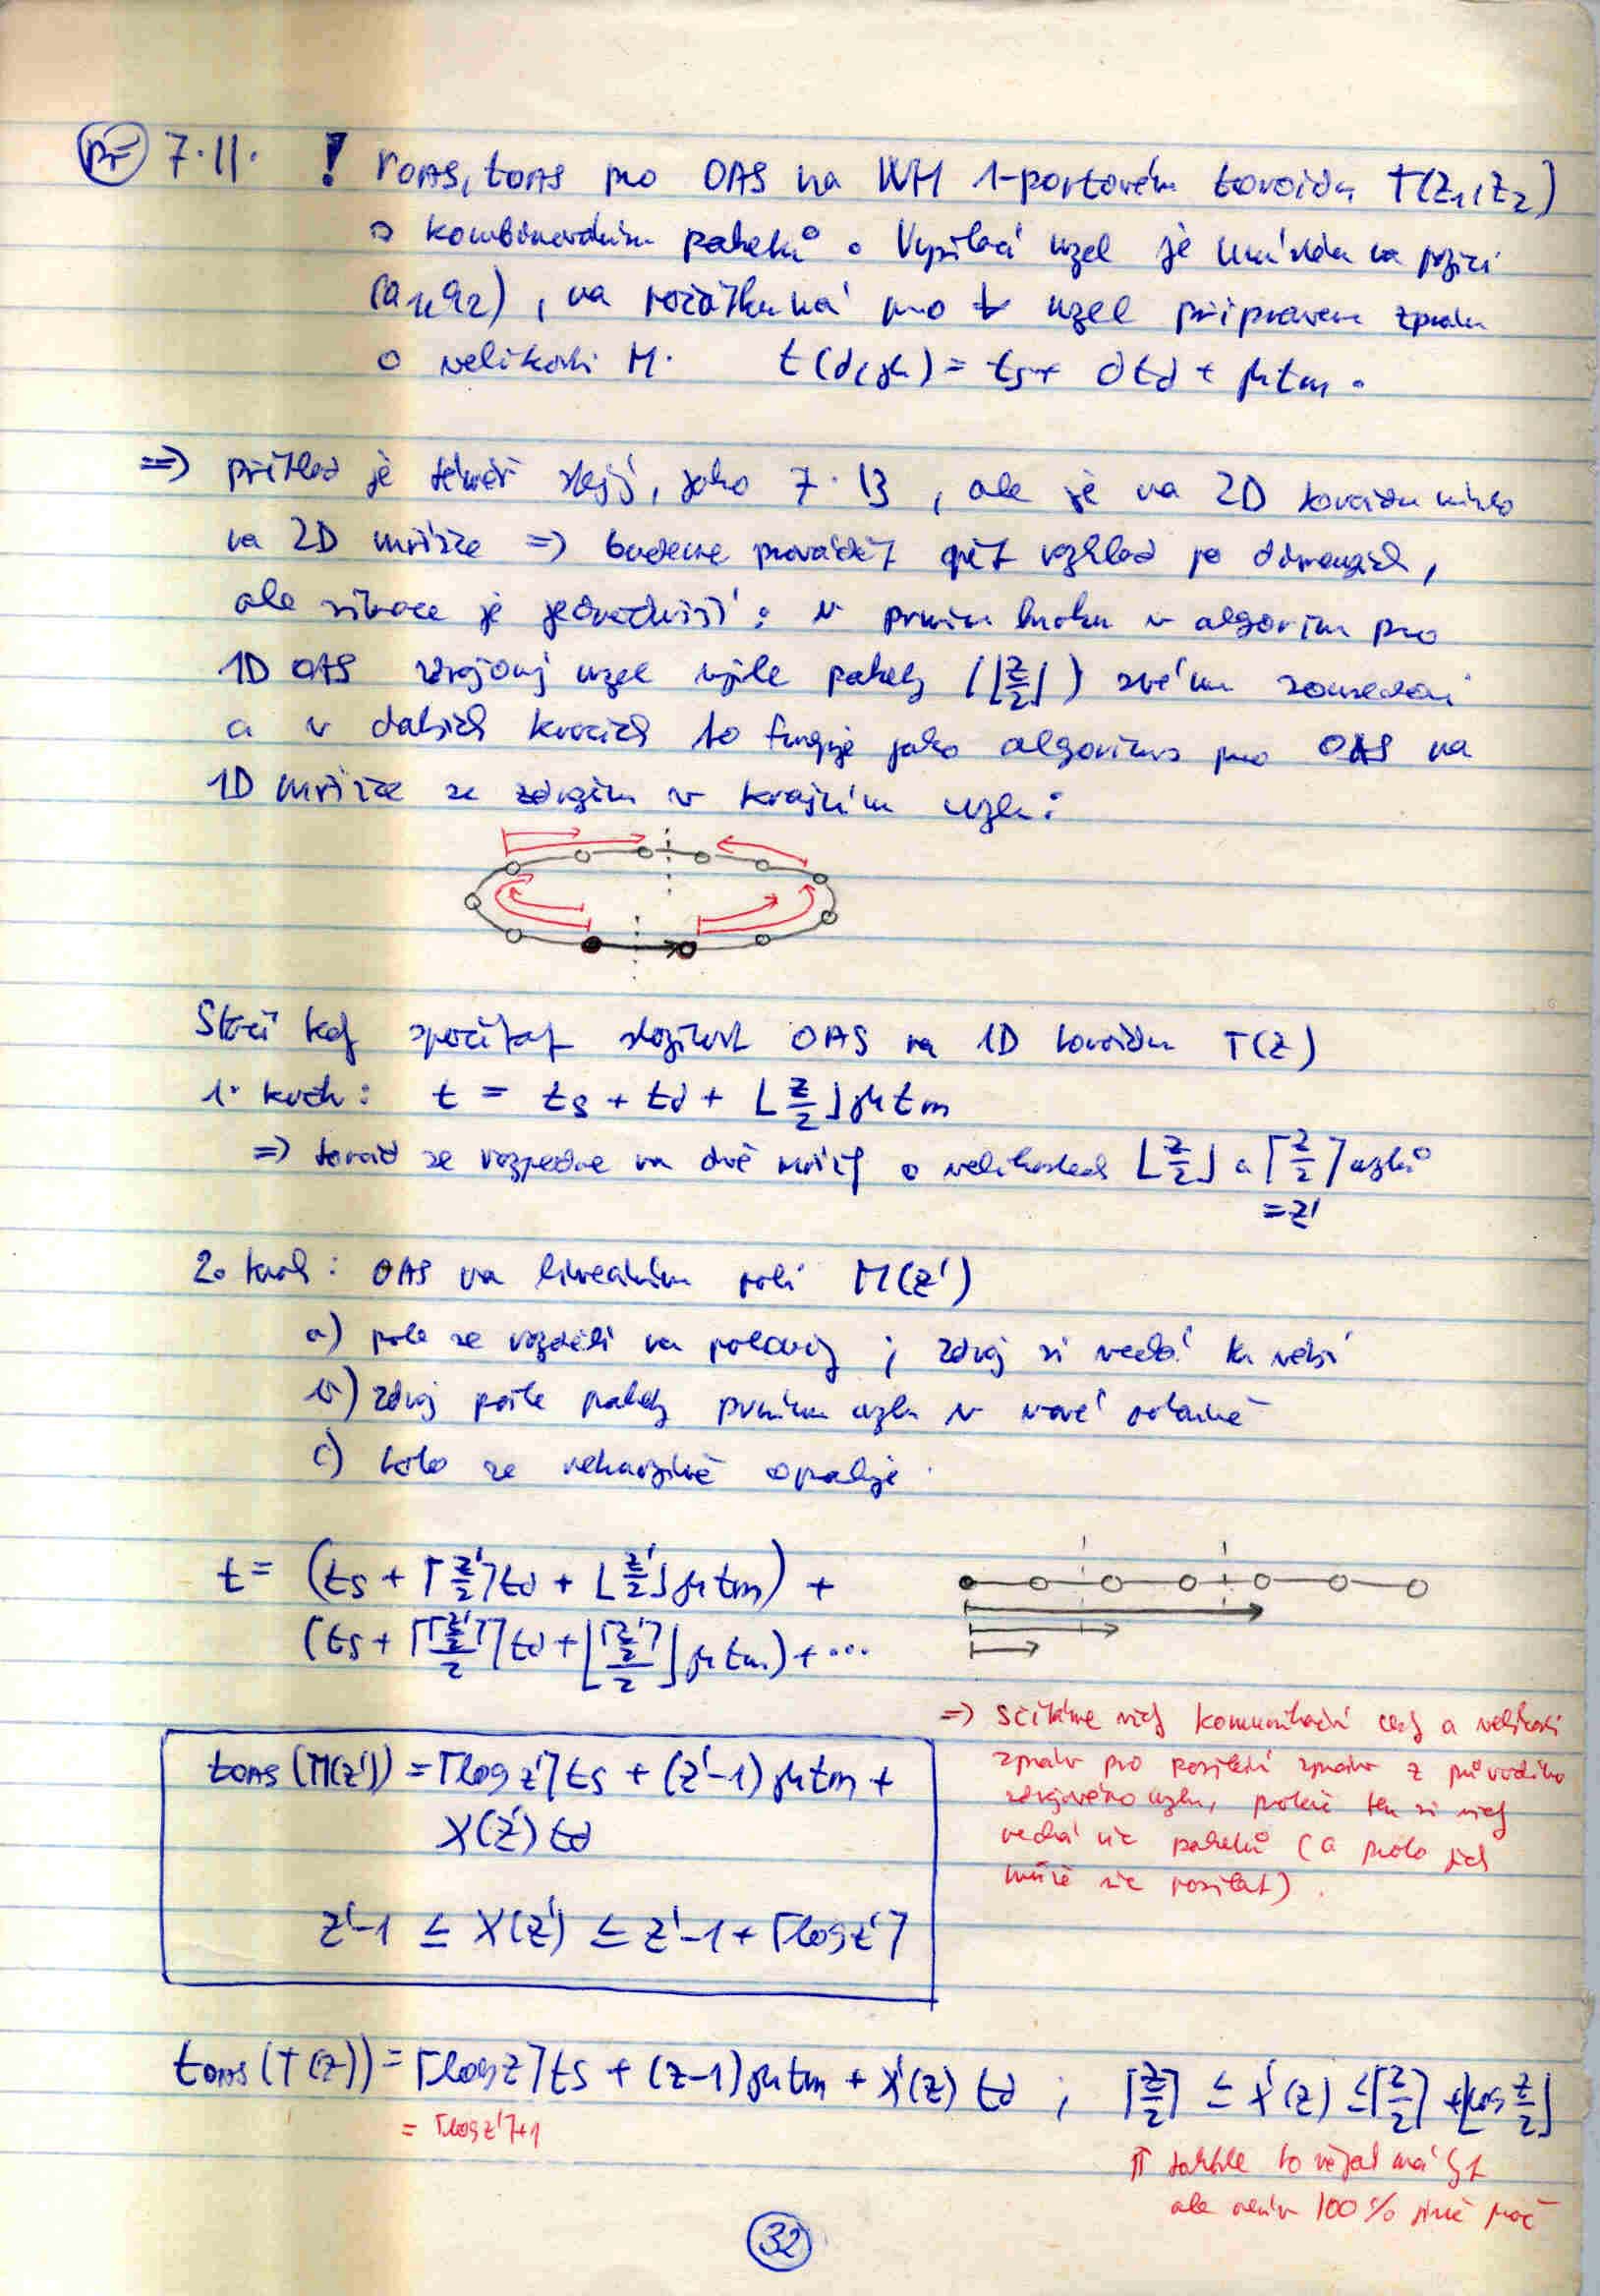 Př 7.11. ! rOAS, tOAS pro OAS na WH 1-portovém toroidu T(z₁,z₂)
s kombinováním paketů. Vysílací uzel je na pozici
(a₁,a₂), na počátku má pro ∀ uzel připravenu zprávu
o velikosti M. t(d,μ) = ts + d td + μ tm.
=> příklad je téměř stejný, jako 7.13, ale je na 2D toroidu místo
na 2D mřížce => budeme provádět opět rozklad po dimenzích,
ale situace je jednodušší: v prvním kroku v algoritmu pro
1D OAS zdrojový uzel vyšle pakety (⌊z/2⌋) svému sousedovi
a v dalších krocích to funguje jako algoritmus pro OAS na
1D mřížce se zdrojem v krajním uzlu:
Stačí tedy spočítat složitost OAS na 1D toroidu T(z)
1. krok: t = ts + td + ⌊z/2⌋ μ tm
=> toroid se rozpadne na dvě mřížky o velikostech ⌊z/2⌋ a ⌈z/2⌉ uzlů
= z'
2. krok: OAS na lineárním poli M(z')
a) pole se rozdělí na poloviny; zdroj si nechá tu větší
b) zdroj pošle pakety prvnímu uzlu v nové polovině
c) toto se rekurzivně opakuje.
t = (ts + ⌈z'/2⌉td + ⌊z'/2⌋ μ tm) +
(ts + ⌈⌈z'/2⌉/2⌉td + ⌊⌈z'/2⌉/2⌋ μ tm) + ...
=> sčítáme vždy komunikační časy a velikosti
zpráv pro posílání zpráv z původního
zdrojového uzlu, protože ten si vždy
nechá víc paketů (a proto jich
může víc posílat).
tOAS(M(z')) = ⌈log z'⌉ts + (z'-1) μ tm +
X(z') td
z'-1 ≤ X(z') ≤ z'-1 + ⌈log z'⌉
tOAS(T(z)) = ⌈log z⌉ts + (z-1) μ tm + X'(z) td ; ⌈z/2⌉ ≤ X'(z) ≤ ⌈z/2⌉ + ⌊log z/2⌋
= ⌈log z'⌉+1
⇑ takhle to nějak má být
ale nevím 100% jistě proč
32